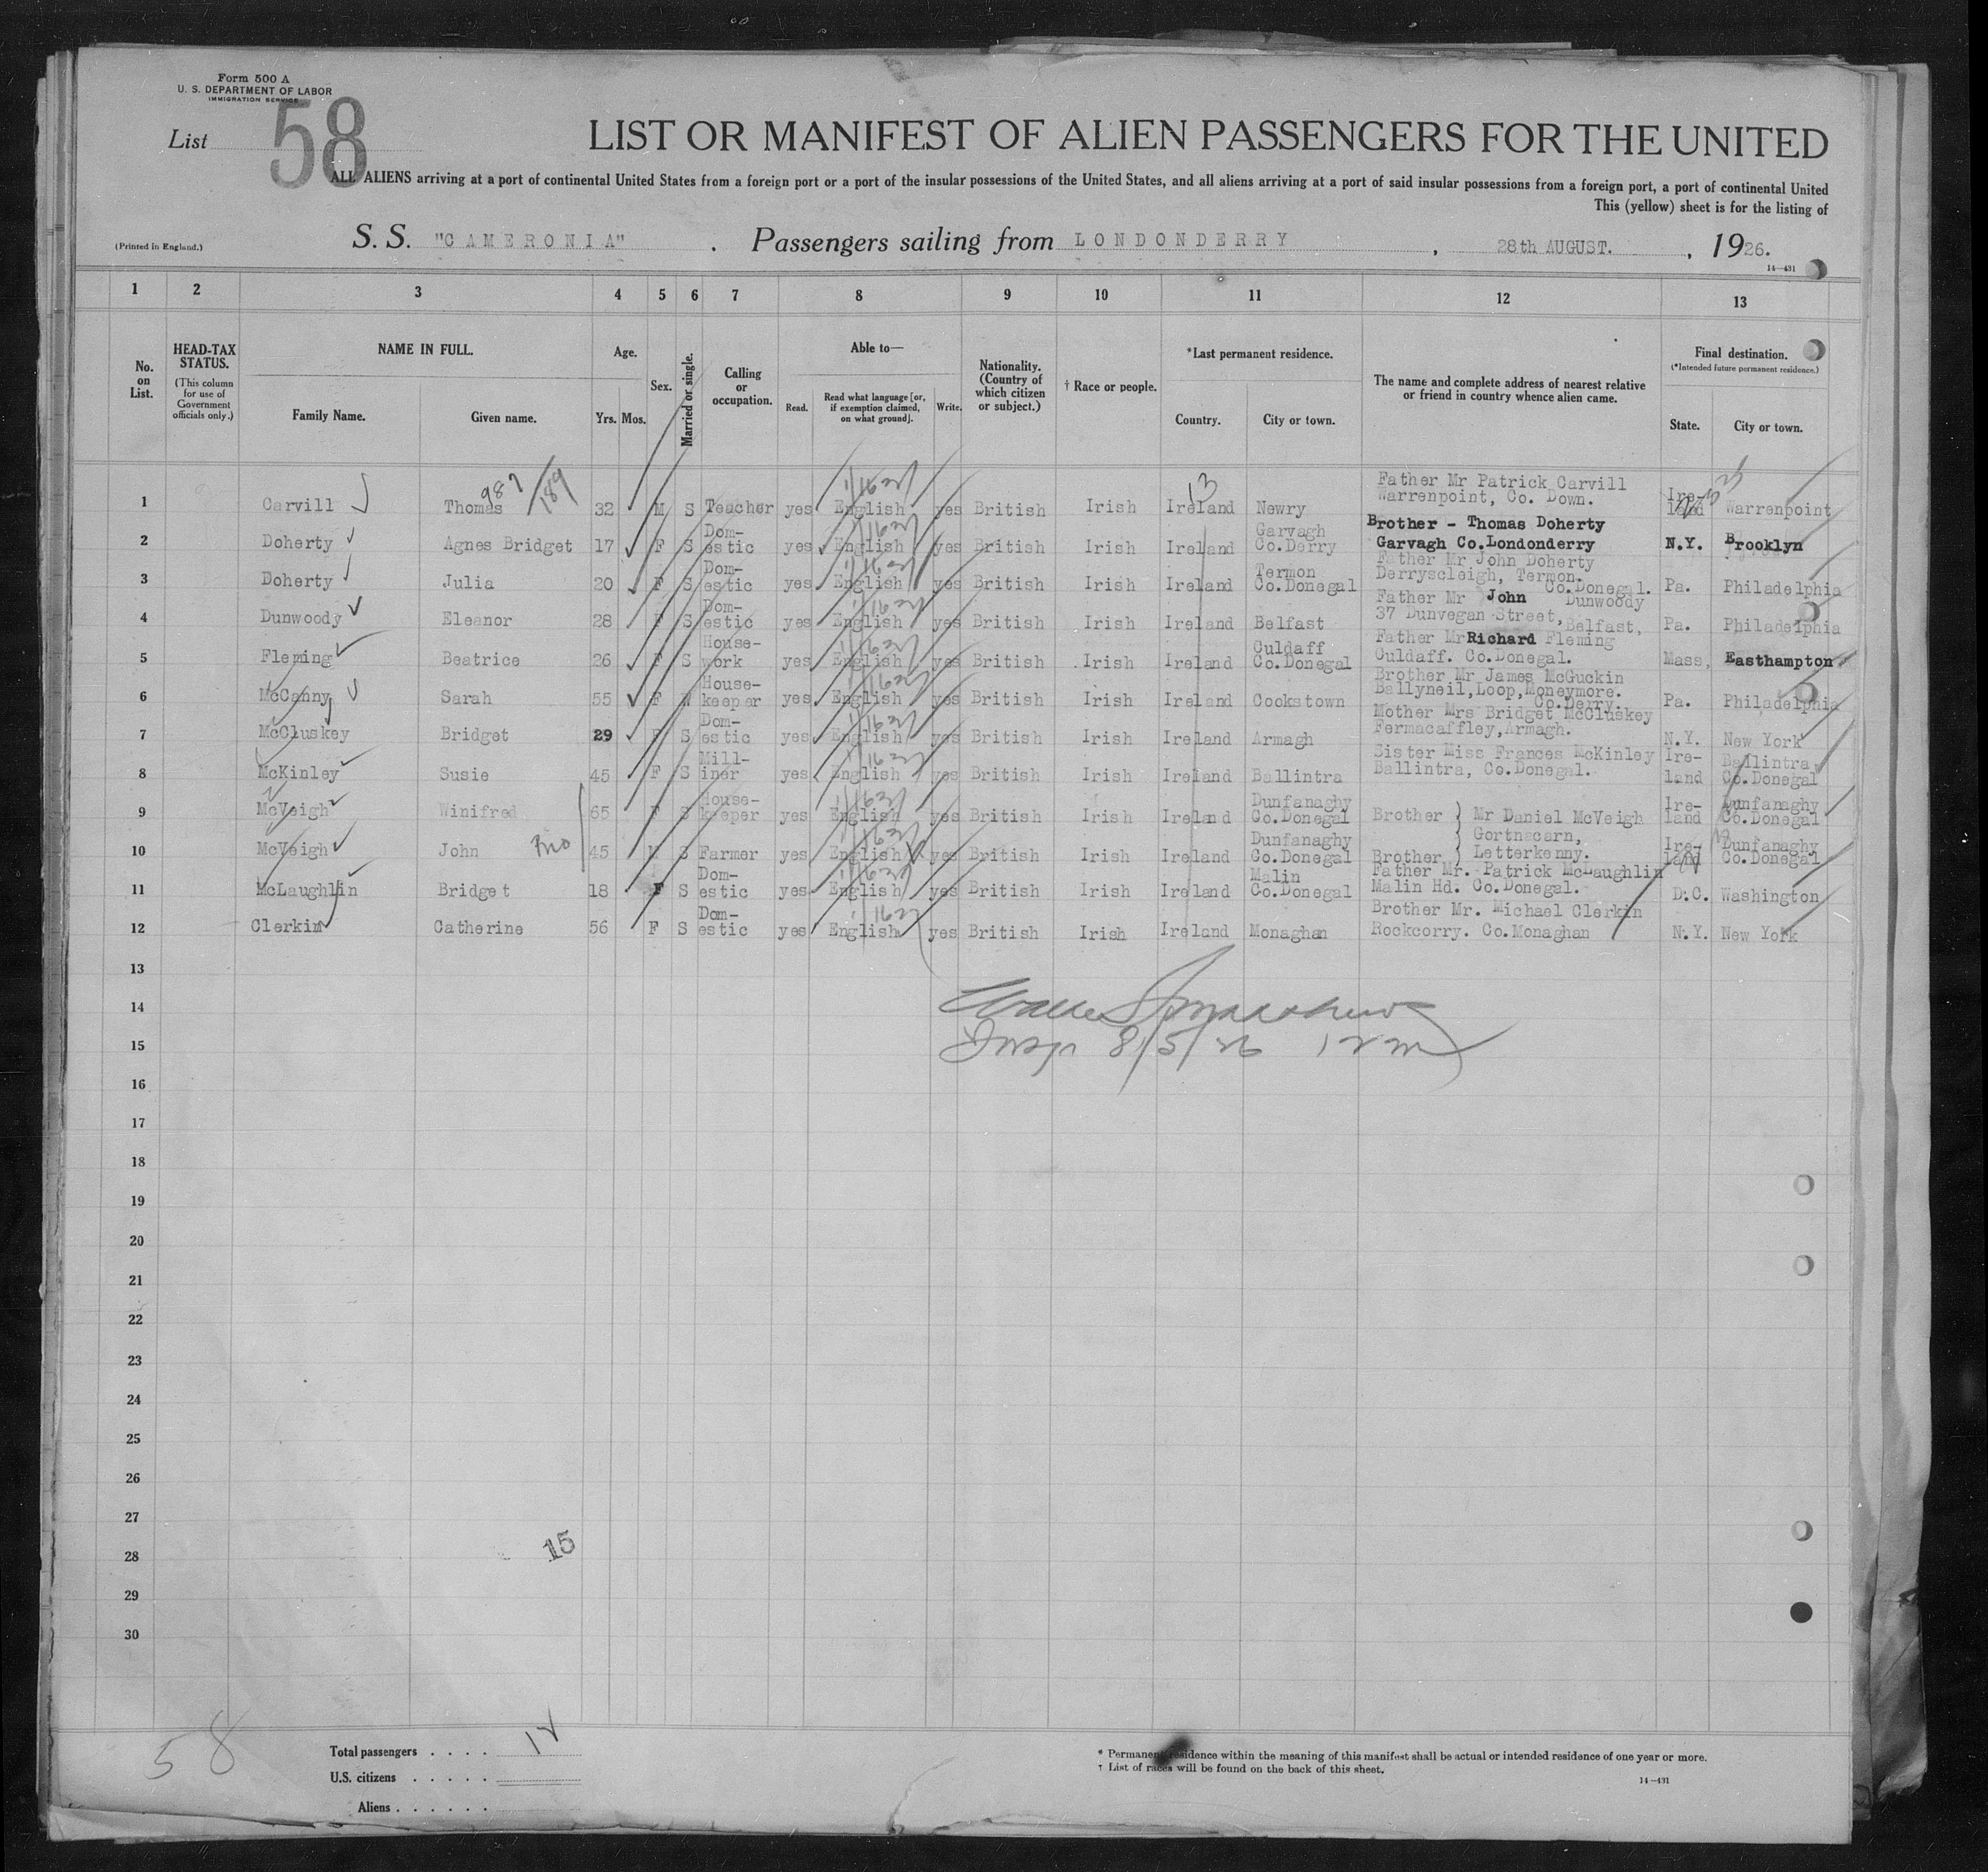 Form 500 A
U. S. DEPARTMENT OF LABOR
IMMIGRATION SERVICE
List 58
LIST OR MANIFEST OF ALIEN PASSENGERS FOR THE UNITED
ALL ALIENS arriving at a port of continental United States from a foreign port or a port of the insular possessions of the United States, and all aliens arriving at a port of said insular possessions from a foreign port, a port of continental United
This (yellow) sheet is for the listing of
(Printed in England.)
S. S. "CAMERONIA" . Passengers sailing from LONDONDERRY , 28th AUGUST. , 1926.
14—431
1 2 3 4 5 6 7 8 9 10 11 12 13
No. on List.
HEAD-TAX STATUS.
(This column for use of Government officials only.)
NAME IN FULL.
Family Name. Given name.
Age.
Yrs. Mos.
Sex.
Married or single.
Calling or occupation.
Able to—
Read. Read what language [or, if exemption claimed, on what ground]. Write.
Nationality. (Country of which citizen or subject.)
† Race or people.
*Last permanent residence.
Country. City or town.
The name and complete address of nearest relative or friend in country whence alien came.
Final destination.
(*Intended future permanent residence.)
State. City or town.
987/189
13
1 Carvill Thomas 32 M S Teacher yes English yes British Irish Ireland Newry Father Mr Patrick Carvill Warrenpoint, Co. Down. Ire-land Warrenpoint
2 Doherty Agnes Bridget 17 F S Dom-estic yes English yes British Irish Ireland Garvagh Co.Derry Brother - Thomas Doherty Garvagh Co.Londonderry N.Y. Brooklyn
3 Doherty Julia 20 F S Dom-estic yes English yes British Irish Ireland Termon Co.Donegal Father Mr John Doherty Derryscleigh, Termon. Co.Donegal. Pa. Philadelphia
4 Dunwoody Eleanor 28 F S Dom-estic yes English yes British Irish Ireland Belfast Father Mr John Dunwoody 37 Dunvegan Street, Belfast, Pa. Philadelphia
5 Fleming Beatrice 26 F S House-work yes English yes British Irish Ireland Culdaff Co.Donegal Father Mr Richard Fleming Culdaff. Co.Donegal. Mass, Easthampton
6 McCanny Sarah 55 F W House-keeper yes English yes British Irish Ireland Cookstown Brother Mr James McGuckin Ballyneil, Loop, Moneymore. Co.Derry. Pa. Philadelphia
7 McCluskey Bridget 29 F S Dom-estic yes English yes British Irish Ireland Armagh Mother Mrs Bridget McCluskey Fermacaffley, Armagh. N.Y. New York
8 McKinley Susie 45 F S Mill-iner yes English yes British Irish Ireland Ballintra Sister Miss Frances McKinley Ballintra, Co.Donegal. Ire-land Ballintra, Co.Donegal
9 McVeigh Winifred 65 F S House-keeper yes English yes British Irish Ireland Dunfanaghy Co.Donegal Brother } Mr Daniel McVeigh Ire-land Dunfanaghy Co.Donegal
10 McVeigh John 45 M S Farmer yes English yes British Irish Ireland Dunfanaghy Co.Donegal Brother } Gortnacarn, Letterkenny. Ire-land Dunfanaghy Co.Donegal
11 McLaughlin Bridget 18 F S Dom-estic yes English yes British Irish Ireland Malin Co.Donegal Father Mr. Patrick McLaughlin Malin Hd. Co.Donegal. D.C. Washington
12 Clerkin Catherine 56 F S Dom-estic yes English yes British Irish Ireland Monaghan Brother Mr. Michael Clerkin Rockcorry. Co.Monaghan N.Y. New York
13
14
15 Insp 8/5/26
16
17
18
19
20
21
22
23
24
25
26
27
15
28
29
30
58
Total passengers . . . . 12
U.S. citizens . . . . .
Aliens . . . . . .
* Permanent residence within the meaning of this manifest shall be actual or intended residence of one year or more.
† List of races will be found on the back of this sheet.
14—431